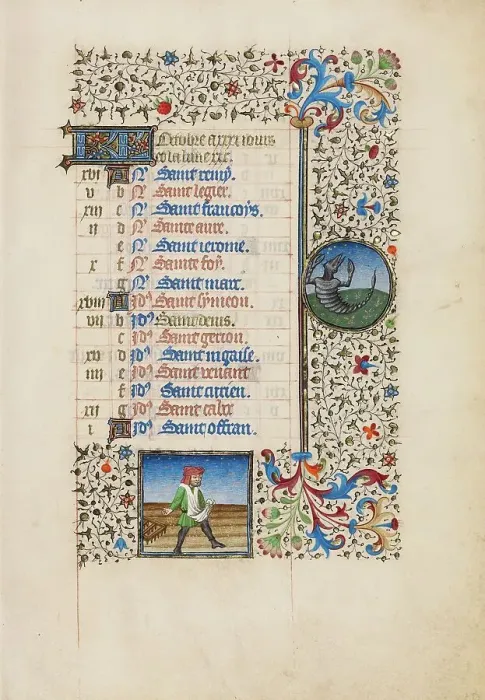 Octobre a xxxi iours
et la lune xxx.
xvi A N Saint remy.
v b N Saint legier.
xiii c N Saint francoys.
ii d N Sainte aure.
e N Saint ierome.
x f N Sainte foy.
g N Saint marc.
xviii A Id9 Saint symeon.
vii b Id9 Saint denis.
c Id9 Saint gerion.
xv d Id9 Saint nigaise.
iiii e Id9 Saint venant
f Id9 Saint
xii g Id9 Saint calixt
i A Id9 Saint offran.